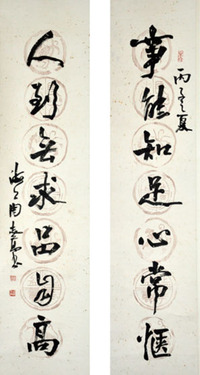 丙子之夏
事能知足心常惬
人到无求品自高